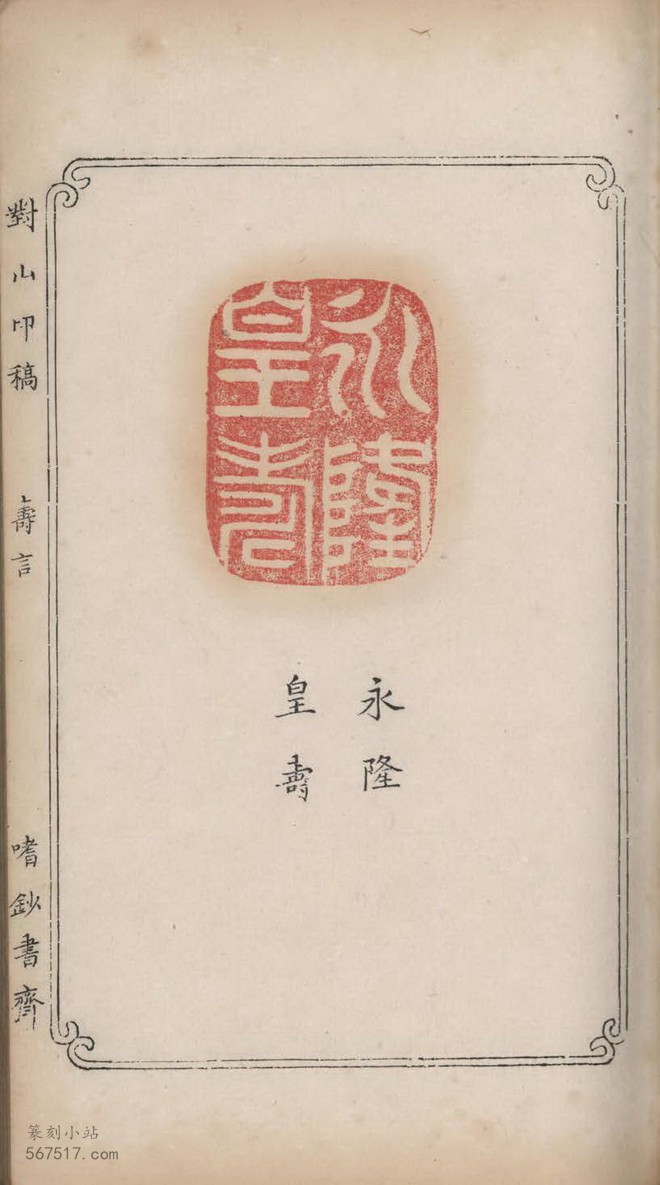 永隆
皇壽
永隆
皇壽
對山印稿
壽言
嗜鈔書齋
篆刻小站
567517.com